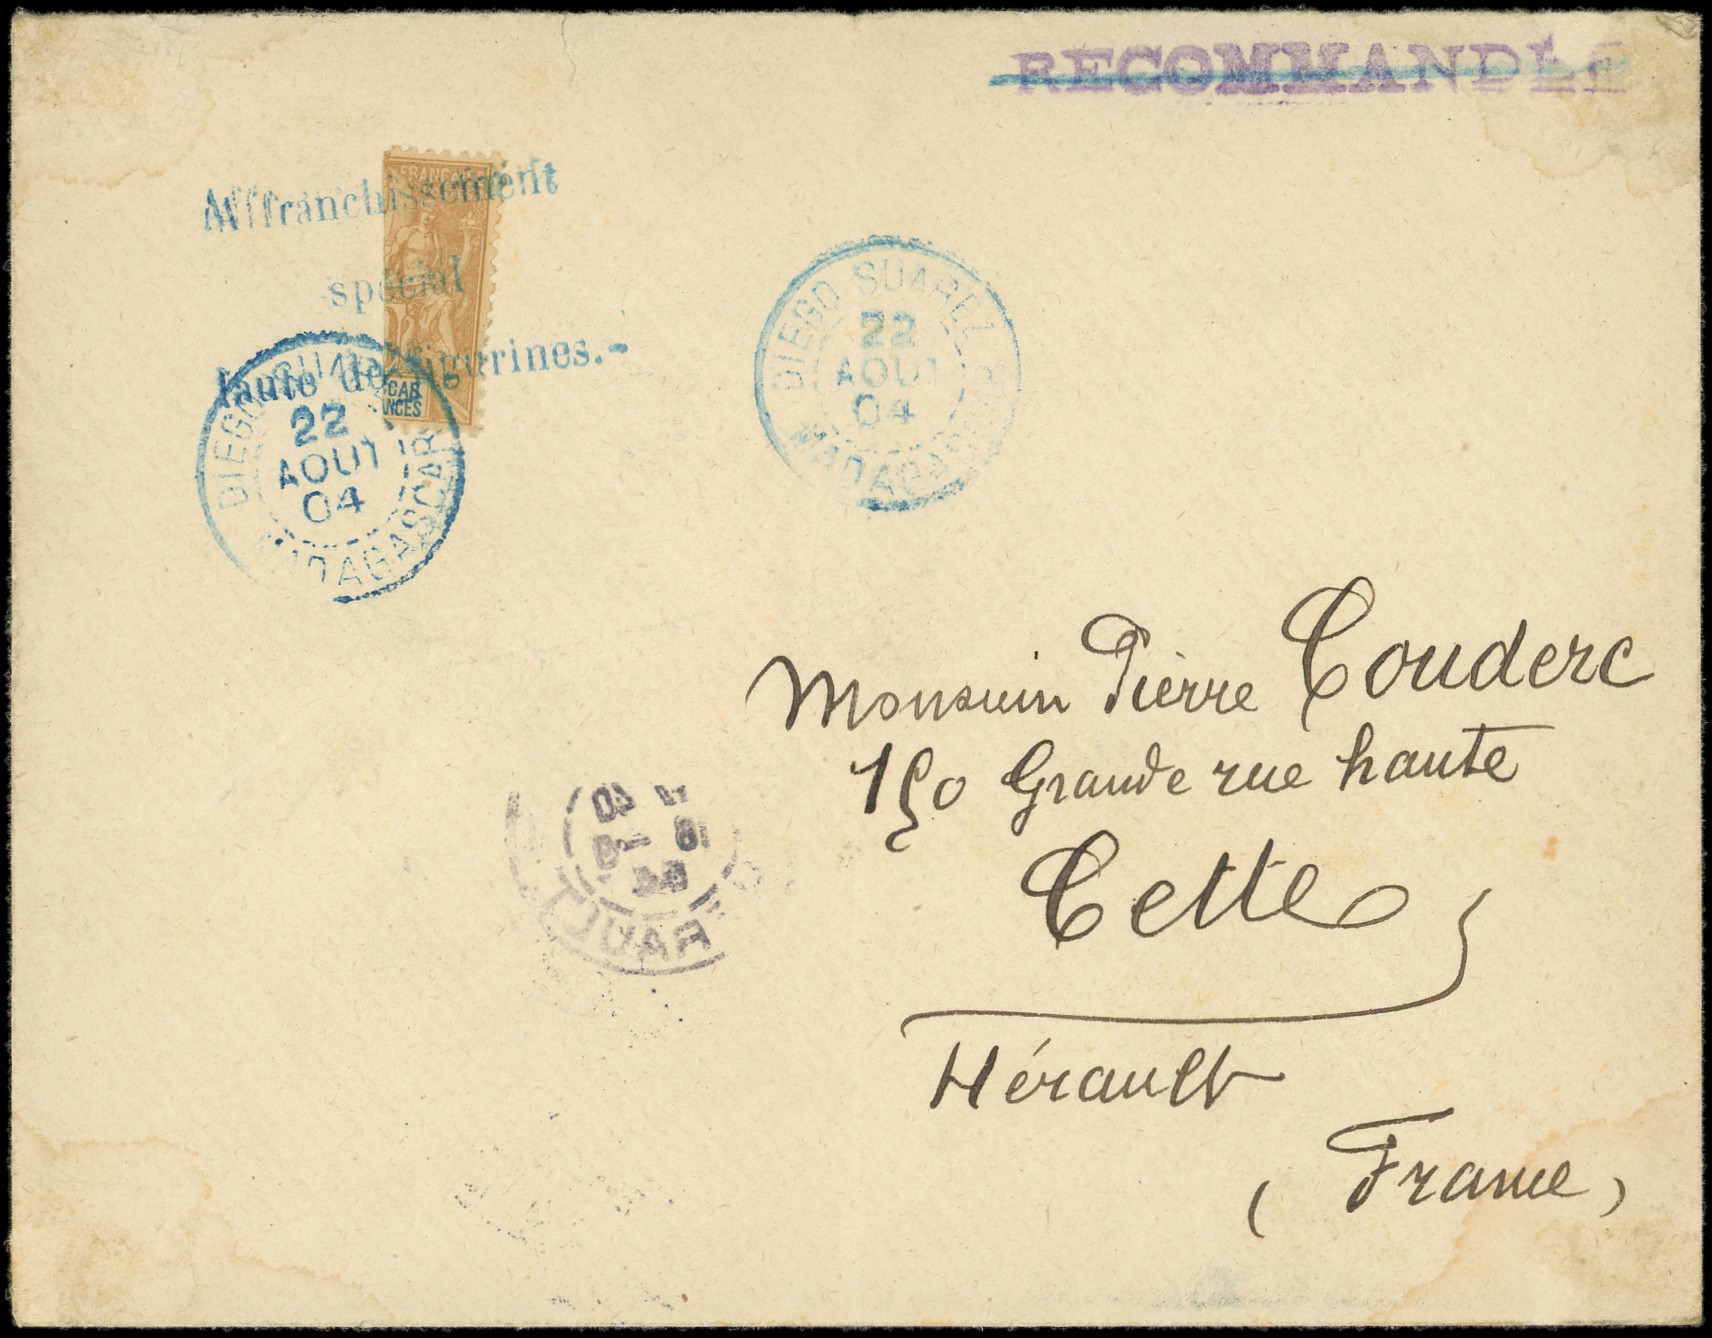 RECOMMANDÉ
Affranchissement
spécial
faute de figurines.-
FRANÇAI
GAR
ANCES
DIEGO SUAREZ
22
AOUT
04
MADAGASCAR
DIEGO SUAREZ
22
AOUT
04
MADAGASCAR
Monsieur Pierre Couderc
150 Grande rue haute
Cette
Hérault
(France)